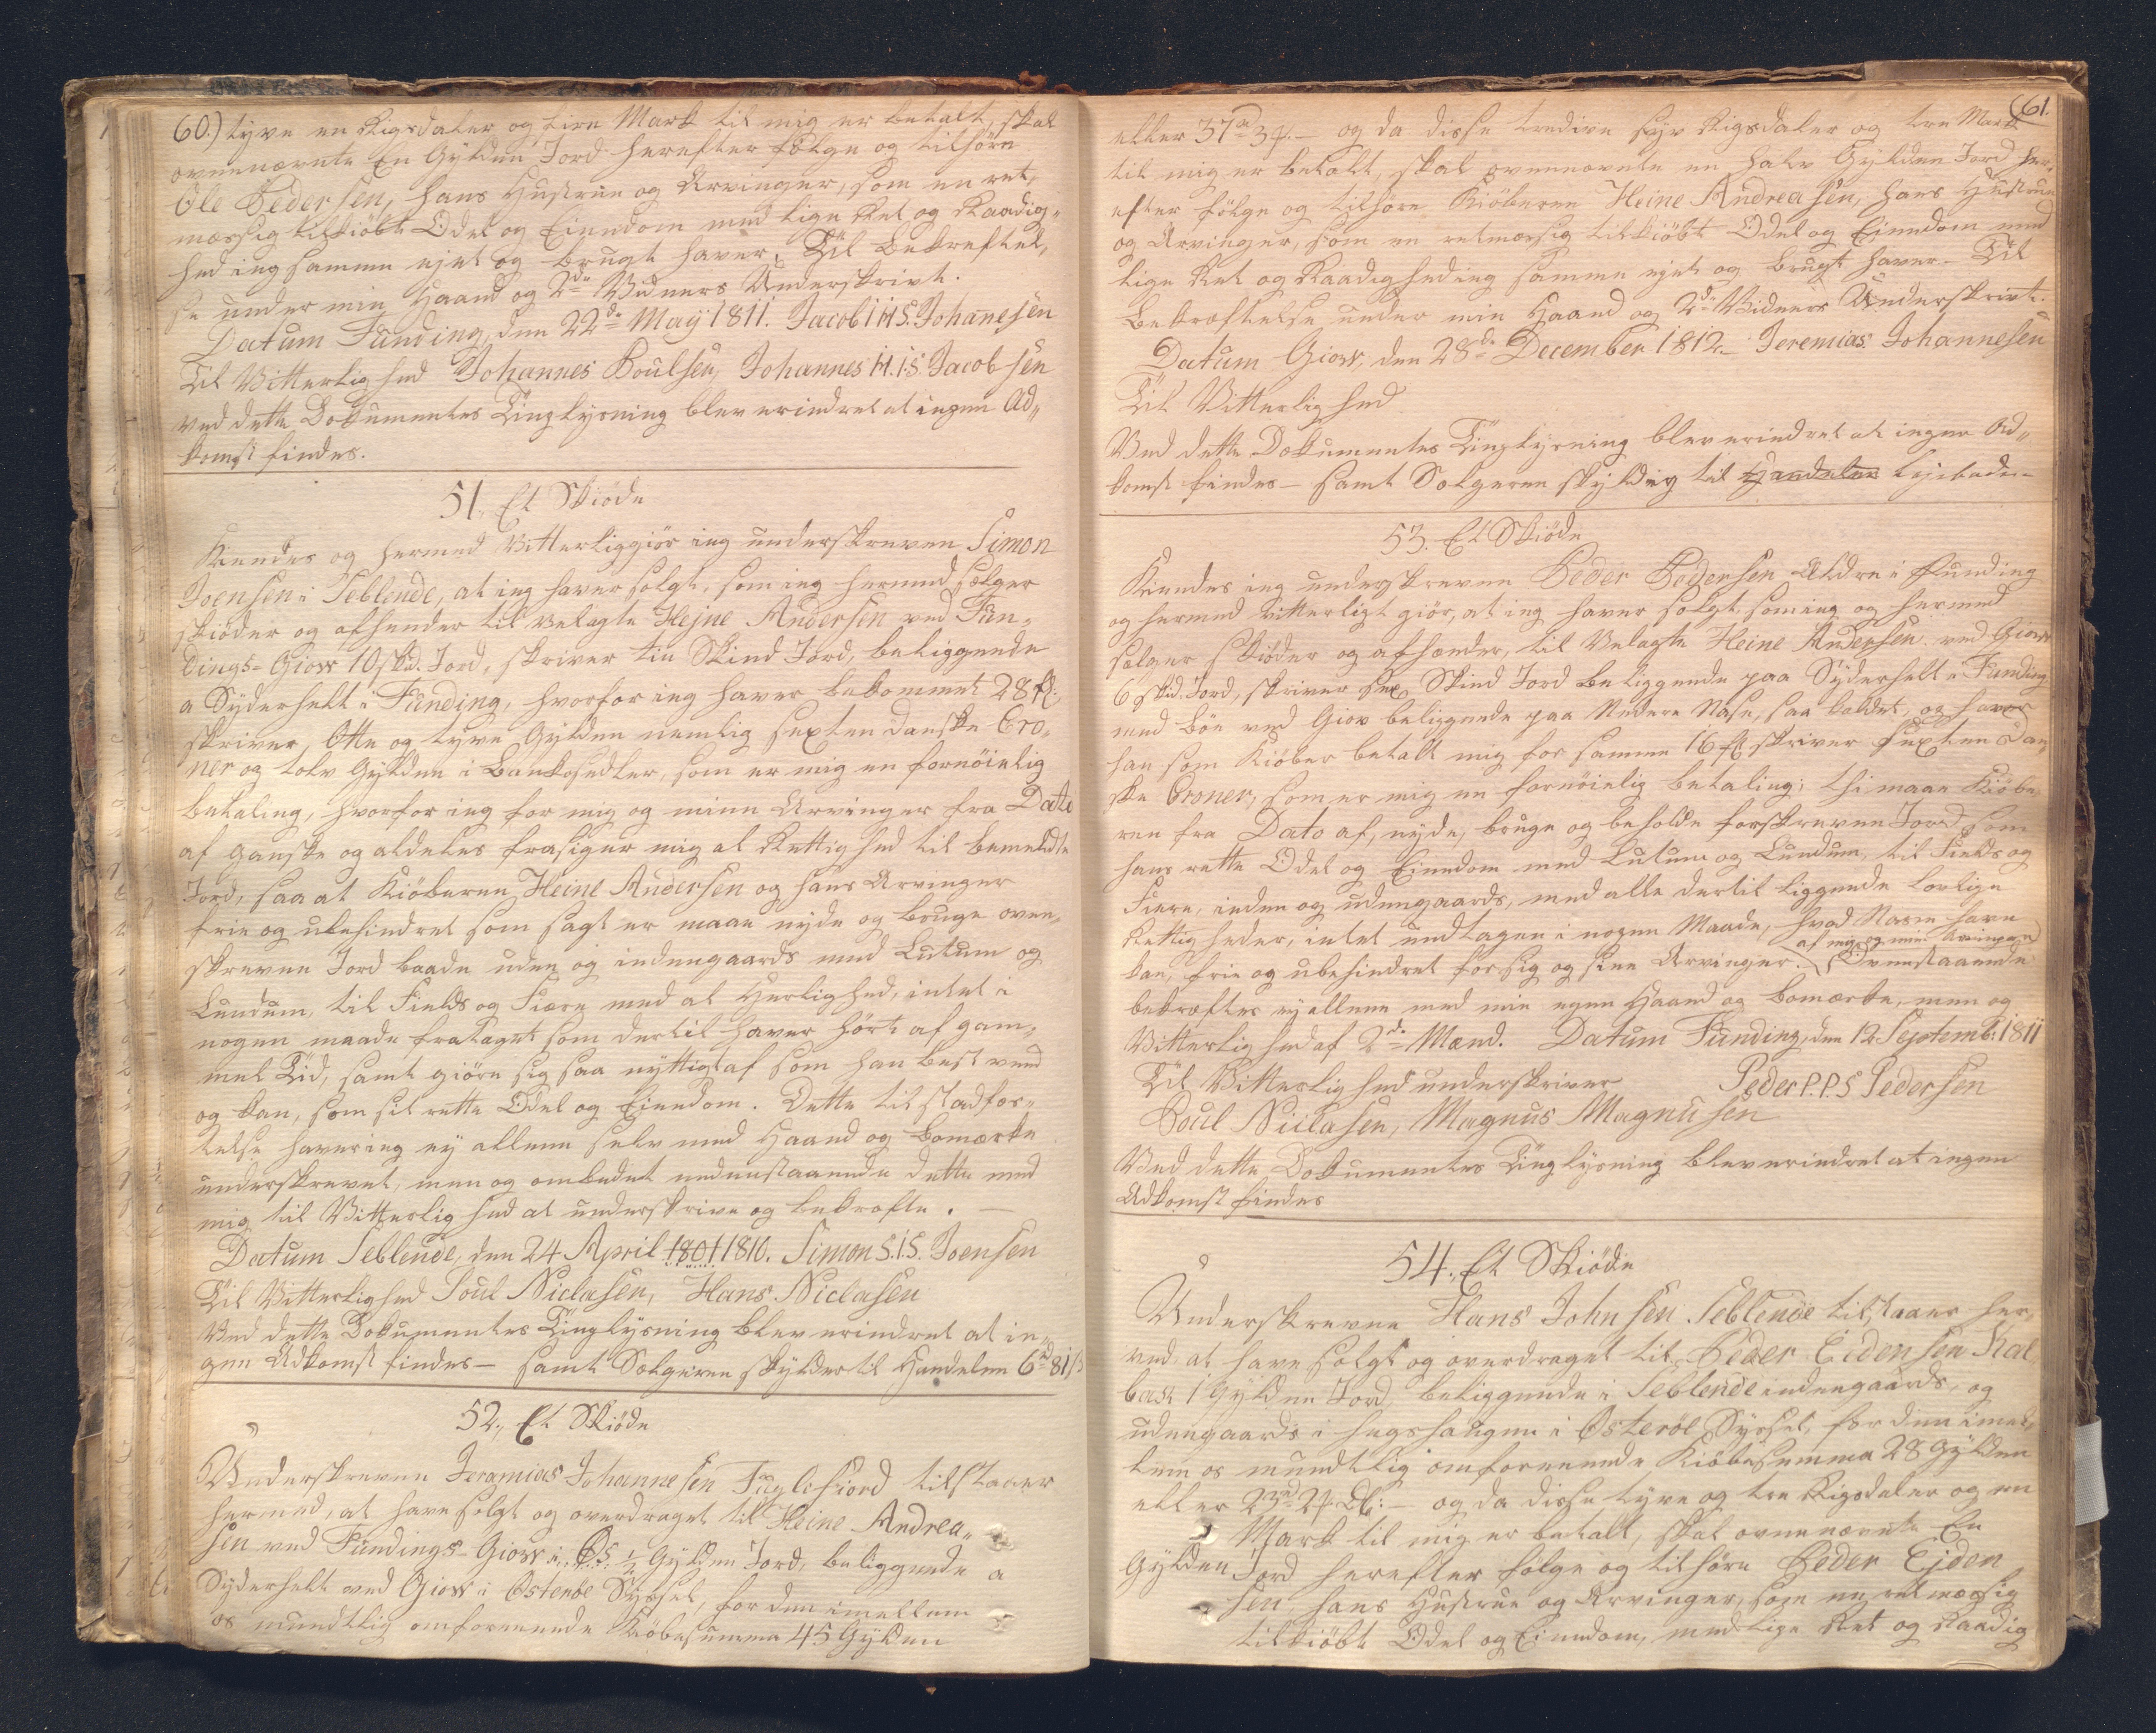 60.) tyve en Rigsdaler og fire Mark til mig er betalt, skal
ovennævnte En Gylden Jord herefter følge og tilhøre
Ole Pedersen, hans Hustrue og Arvinger, som en ret¬
mæssig tilkiøbt Odel og Eiendom med lige Ret og Raadig¬
hed ieg samme ejet og brugt haver. Til Bekreftel¬
se under min Haand og 2de Vidners Underskrivt.
Datum Funding, den 22de Maÿ 1811. Jacob I H S. Johanesen
Til Vitterlighed Johannes Poulsen, Johannes H. I. S. Jacobsen
Ved dette Dokumentes Tinglysning blev erindret at ingen Ad¬
komst findes.
51. Et Skiøde
Kiendes og hermed Vitterliggiør ieg underskreven Simon
Joensen i Seblende, at ieg haver solgt, som ieg hermed sælger
skiøder og afhender til velagte Hejne Andersen ved Fun¬
dings-Giow 10 skd. Jord, skriver tie Skind Jord, beliggende
a Sÿderhelt i Funding, hvorfor ieg haver bekommet 28 fl:
skriver, Otte og tyve Gylden nemlig sexten danske Cro¬
ner og tolv Gylden i Bankosedler, som er mig en fornøielig
betaling, hvorfor ieg for mig og mine Arvinger fra Dato
af ganske og aldeles frasiger mig al Rettighed til bemeldte
Jord, saa at Kiøberen Heine Andersen og hans Arvinger
frie og ubehindret som sagt er maae nyde og bruge oven¬
skreven Jord baade uden og indengaards med Lutum og
Lundum, til Fields og Fiære med al Herlighed, intet i
nogen maade fratagen som dertil haver hørt af gam¬
mel Tid, samt giøre sig saa nyttigt af som han best veed
og kan, som sit rette Odel og Eiendom. Dette til stadfæs¬
telse haver ieg ej allene selv med Haand og bomærke
underskrevet, men og ombedet nedenstaaende dette med
mig til Vitterlighed at underskrive og bekræfte. —
Datum Seblende, den 24 April 1801 1810. Simon S. I. S. Joensen
Til Vitterlighed Poul Niclasen, Hans Niclasen
Ved dette Dokumentes Tinglysning blev erindret at in¬
gen Adkomst findes — samt Sælgeren skylder til Handelen 6rd 81 s
52. Et Skiøde
Underskreven Jeramias Johannesen Fuglefiord tilstaaer
hermed, at have solgt og overdraget til Heine Andrea¬
sen ved Fundings-Giow i 1/2 Gylden Jord, beliggende a
Sÿderhelt ved Giow i Osterøe Syssel, for den imellem
os mundtlig omforenende Kiøbesumma 45 Gylden
61.
eller 37rd 3 — og da disse tredive syv Rigsdaler og tre Mark
til mig er betalt, skal ovennævnte en halv Gylden Jord her¬
efter følge og tilhøre Kiøberen Heine Andreasen, hans Hustrue
og Arvinger, som en retmæssig tilkiøbt Odel og Eiendom med
lige Ret og Raadighed ieg samme ejet og brugt haver — Til
Bekræftelse under min Haand og 2de Vidners Underskrivt.
Datum Giow, den 28de December 1812. Jeremias Johannesen
Til Vitterlighed
Ved dette Dokumentes Tinglysning blev erindret at ingen Ad¬
komst findes — samt Sælgeren skyldig til Handelen
53. Et Skiøde
Kiendes ieg underskreven Peder Pedersen Ældre i Funding
og hermed vitterligt giør, at ieg haver solgt, som ieg og hermed
sælger skiøder og afhænder, til Velagte Heine Andersen ved Giow
6 skd. Jord, skriver sex Skind Jord beliggende paa Sÿderhelt i Funding
med Bøe ved Giov beliggende paa Nedere Nase, saa kaldet, og haver
han som Kiøber betalt mig for samme 16 fl skriver sexten Dan
ske Croner, som er mig en fornøielig betaling; thi maae Kiøbe
ren fra Dato af, nyde, bruge og beholde forskreven Jord som
hans rette Odel og Eiendom med Lutum og Lundum, til Fields og
Fiære, inden og udengaards, med alle dertil liggende lovlige
Rettigheder, intet undtagen i nogen Maade, hvad Navn have
af mig og mine Arvinger
kan, frie og ubehindret for sig og sine Arvinger. Ovenstaaende
bekræftes ej allene med min egen Haand og bomærke, men og
Vitterlighed af 2de Mænd. Datum Funding, den 12 Septemb: 1811
Til Vitterlighed underskriver Peder P. P. S Pedersen
Poul Niclasen, Magnus Magnusen
Ved dette Dokumentes Tinglysning blev erindret at ingen
Adkomst findes
54. Et Skiøde
Underskreven Hans Johnsen Seblende tilstaaer her¬
ved, at have solgt og overdraget til Peder Eidensen Kal
bak 1 Gylden Jord, beliggende i Seblende indengaards, og
udengaards i i Osterøe Syssel, for den imel¬
lem os mundtlig omforenende Kiøbesumma 28 Gylden
eller 23rd — og da disse tyve og tre Rigsdaler og en
Mark til mig er betalt, skal ovennævnte En
Gylden Jord herefter følge og tilhøre Peder Ejden
sen hans Hustrue og Arvinger, som en retmæssig
tilkiøbt Odel og Eiendom, med lige Ret og Raadig